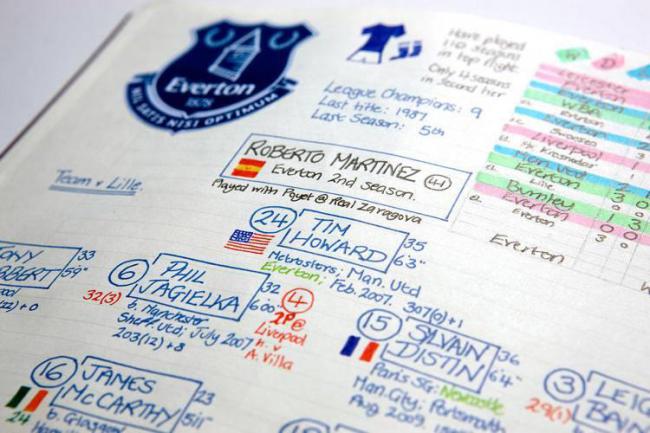 Everton
1878
NIL SATIS NISI OPTIMUM
Have played
110 seasons
in top flight
Only 4 seasons
in second tier
League Champions: 9
Last title: 1987
Last Season: 5th
W D
Leicester
Everton
WBA
Everton
Swansea
Liverpool
Everton
Man Utd
Everton
Lille
Burnley
Everton
Everton
1 3
0 0
3 0
Everton
Team v Lille.
ROBERTO MARTINEZ 41
Everton 2nd season.
Played with Poyet @ Real Zaragova
24 TIM HOWARD
35
6'3"
Metrostars; Man. Utd
Everton; Feb. 2007.
307(0)+1
33
5'9"
6 PHIL JAGIELKA
32
6'00"
32(3)
b. Manchester
Sheff. Utd; July 2007
203(12)+8
4
2P@
Liverpool
h. v
A. Villa
15 SYLVAIN DISTIN
36
6'4"
Paris SG; Newcastle
Man. City; Portsmouth
Aug 2009.
16 JAMES McCARTHY
23
5'11"
24
b. Glasgow
3 LEIG
BAIN
29(1)